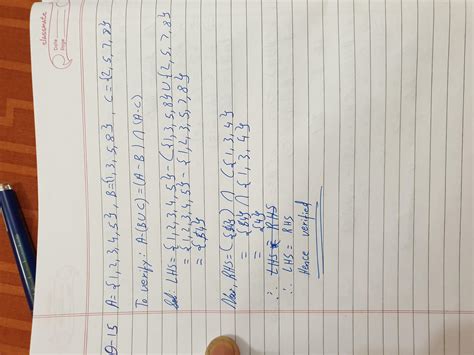 classmate
Date
Page
Q-15 A = {1, 2, 3, 4, 5}, B = {1, 3, 5, 8}, C = {2, 5, 7, 8}
To verify: A-(B∪C) = (A-B) ∩ (A-C)
Sol: LHS = {1, 2, 3, 4, 5} - ({1, 3, 5, 8} ∪ {2, 5, 7, 8}
= {1, 2, 3, 4, 5} - {1, 2, 3, 5, 7, 8}
= {4}
Now, RHS = ({2, 4}) ∩ ({1, 3, 4}
= {2, 4} ∩ {1, 3, 4}
= {4}
∴ LHS = RHS
∴ LHS = RHS
Hence verified